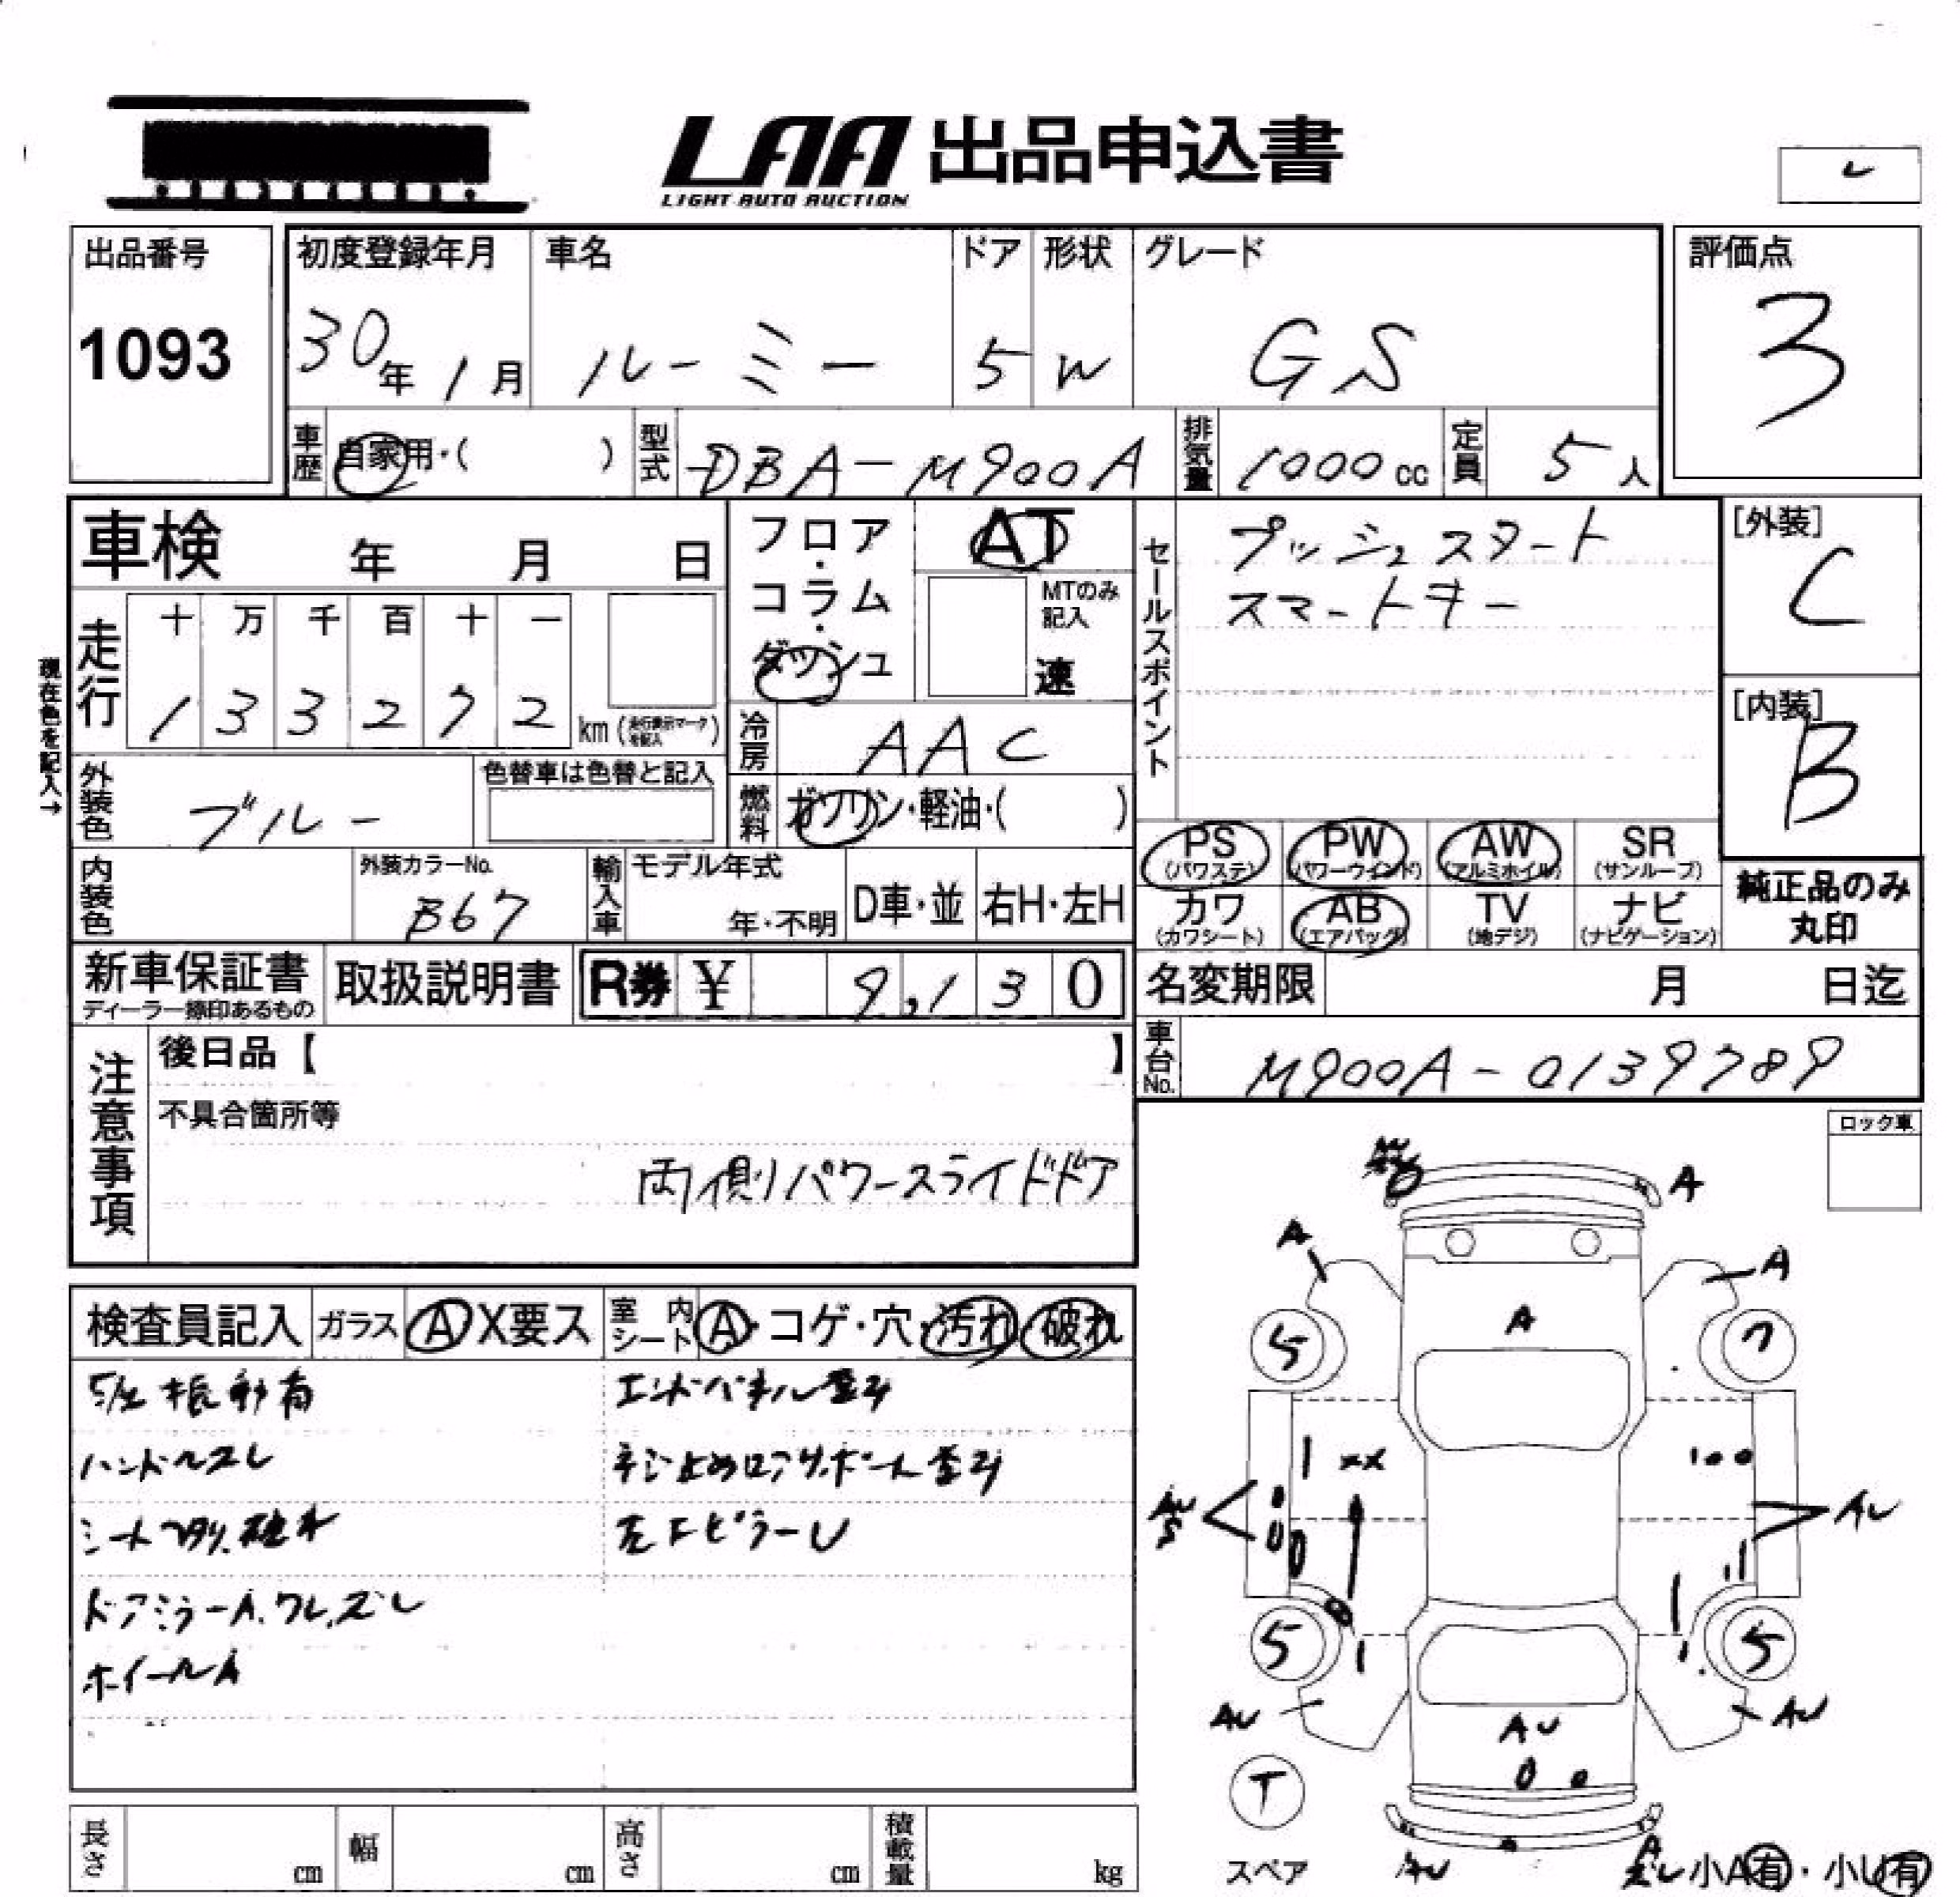 LAA 出品申込書
LIGHT AUTO AUCTION
出品番号
1093
初度登録年月
30年1月
車名
ルーミー
ドア
5
形状
W
グレード
GS
評価点
3
車歴
自家用・( )
型式
DBA-M900A
排気量
1000cc
定員
5人
車検 年 月 日
走行
十 万 千 百 十 一
1 3 3 2 7 2 km (走行表示マークを記入)
現在色を記入→
フロア・コラム・ダッシュ
AT
MTのみ記入
速
冷房
AAC
燃料
ガソリン・軽油・( )
外装色
ブルー
色替車は色替と記入
内装色
外装カラーNo.
B67
輸入車
モデル年式
年・不明
D車・並
右H・左H
セールスポイント
プッシュスタート
スマートキー
[外装]
C
[内装]
B
PS PW AW SR
(パワステ) (パワーウィンド) (アルミホイル) (サンルーフ)
カワ AB TV ナビ
(カワシート) (エアバック) (地デジ) (ナビゲーション)
純正品のみ
丸印
新車保証書
ディーラー捺印あるもの
取扱説明書
R券 ¥ 9,130
名変期限 月 日迄
車台No.
M900A-0139789
注意事項
後日品【 】
不具合箇所等
両側パワースライドドア
ロック車
検査員記入
ガラス
A X要ス
室内シート
A・コゲ・穴・汚れ 破れ
ハンドルスレ
ドアミラーA.ワレ.ズレ
ホイールA
エンドパネル歪み
ネジ止めロアサポート歪み
左Fピラー U
A
A
A
A
5
7
XX
AU
S
AU
5
5
AU
AU
AU
T
スペア
AU
A
ズレ
小A有・小U有
長さ cm
幅 cm
高さ cm
積載量 kg